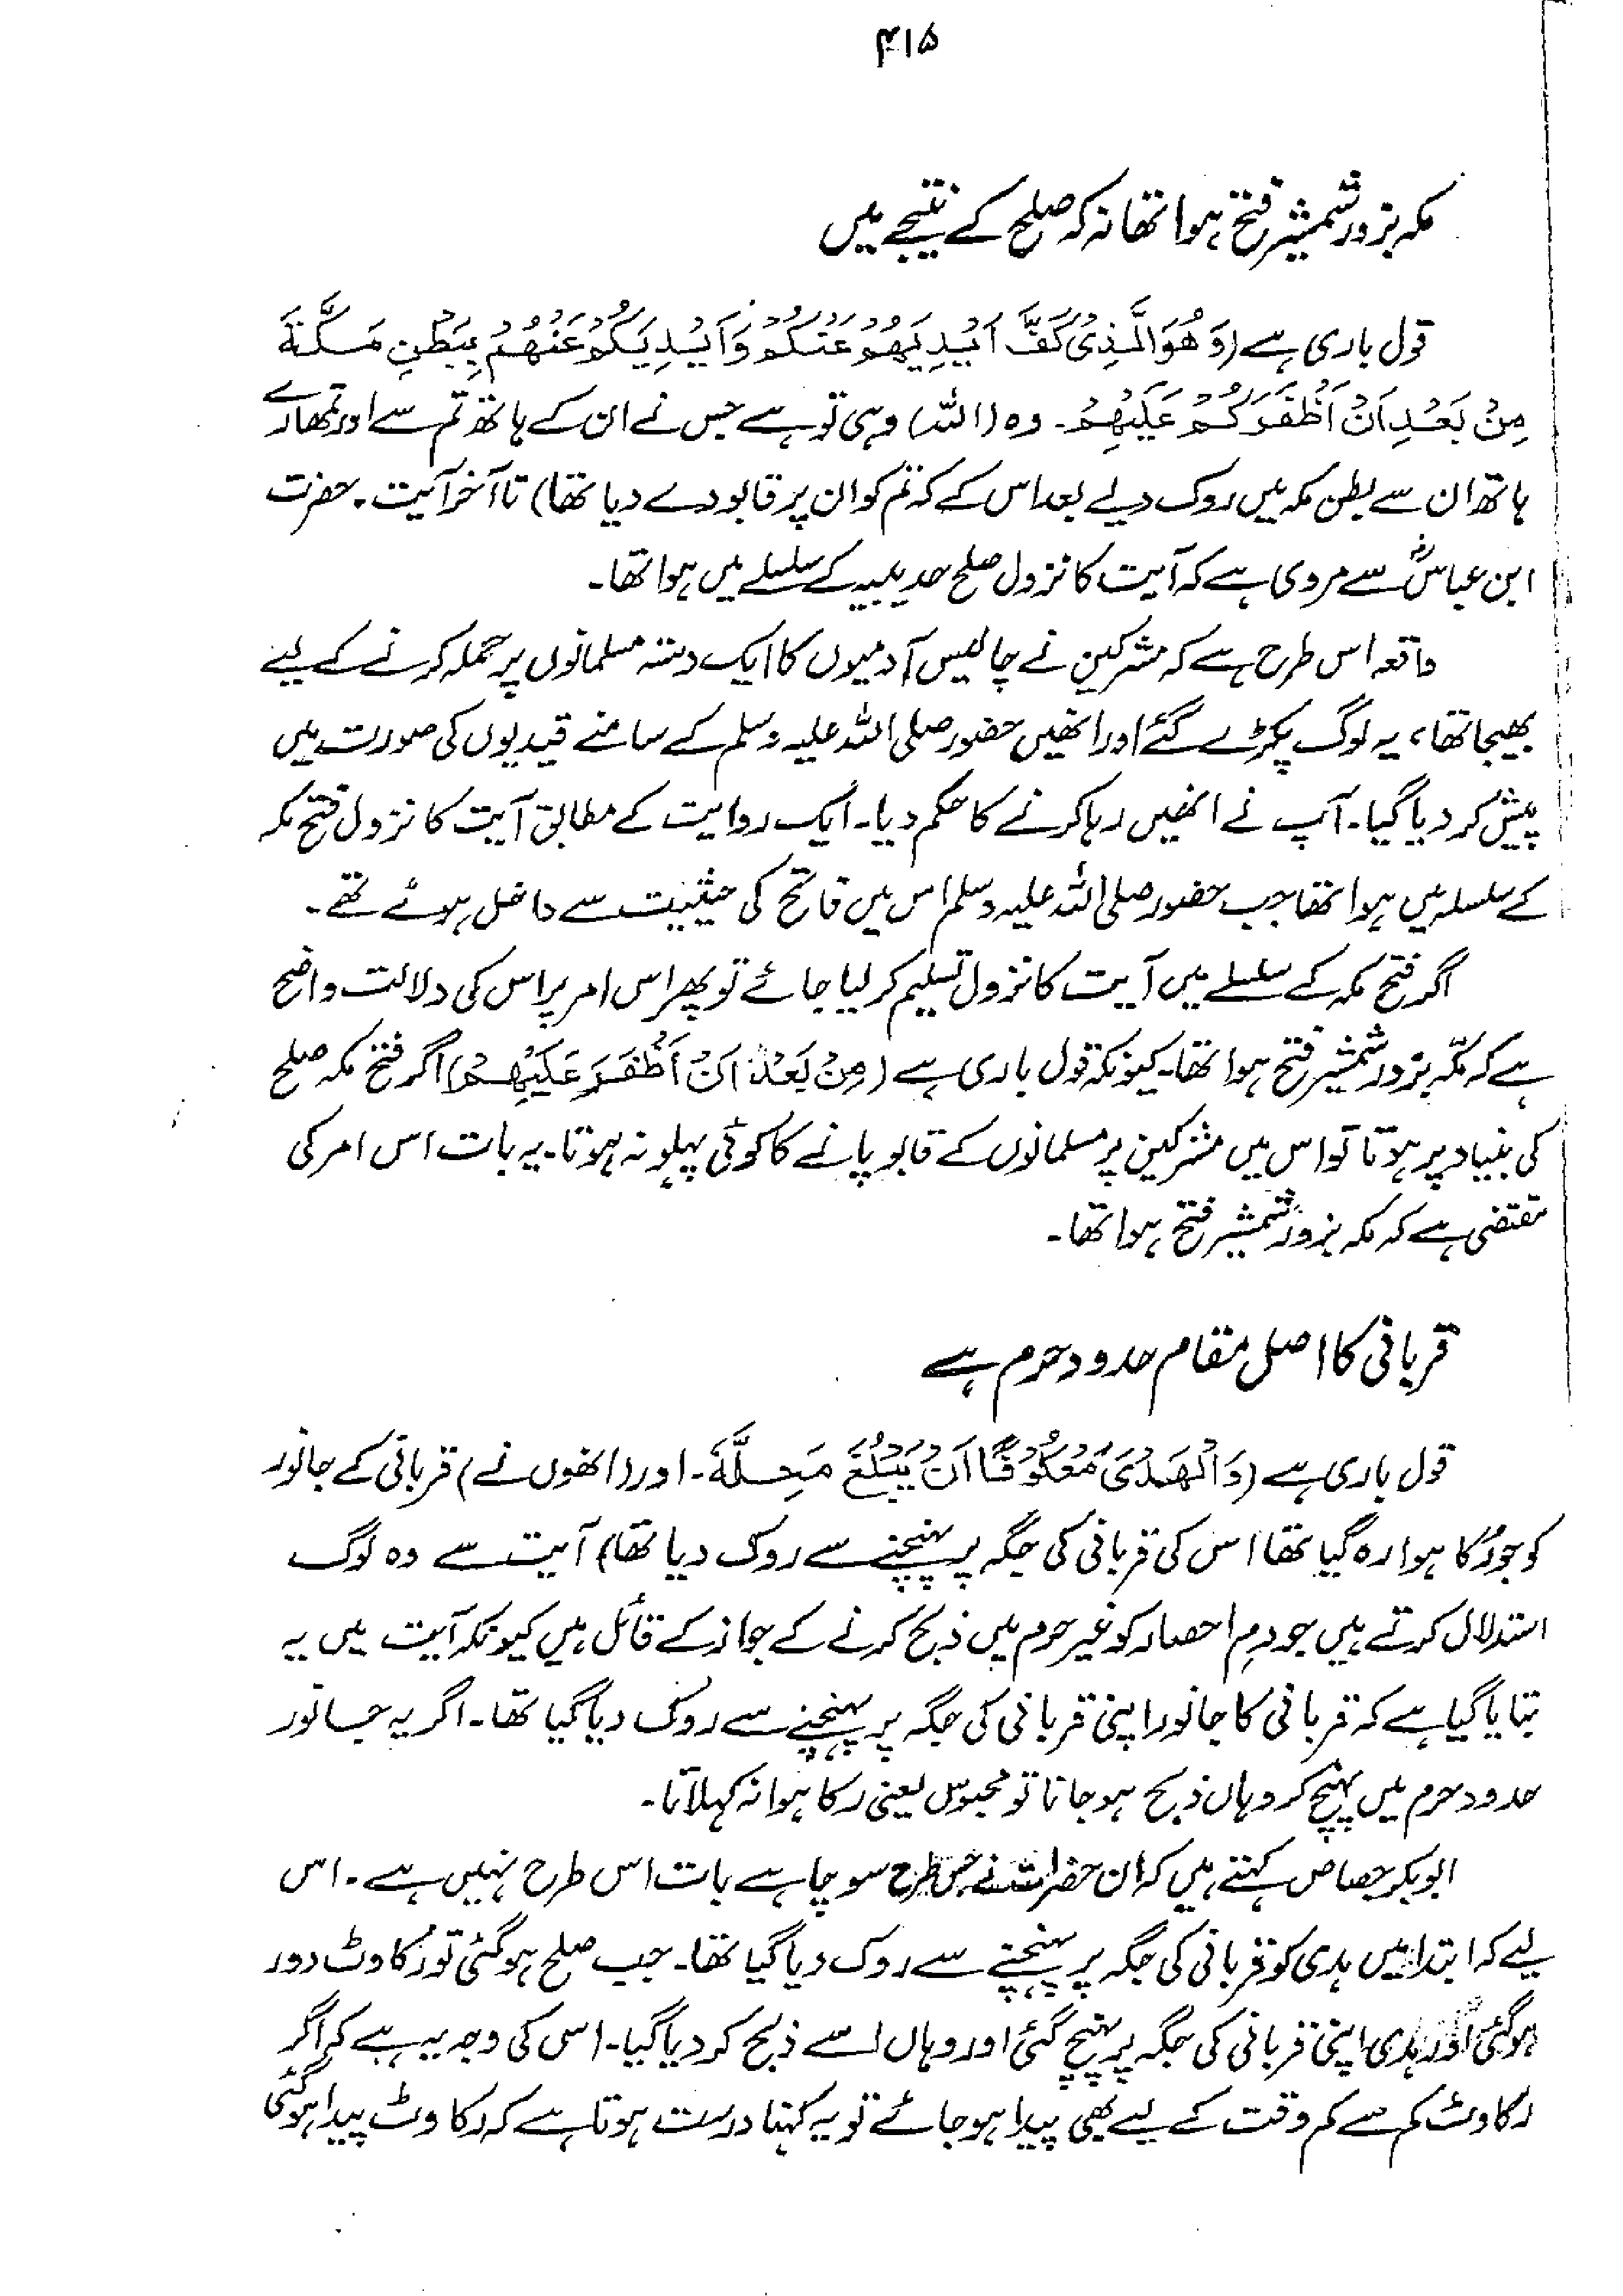 ۴۱۵
مکہ بزور شمشیر فتح ہوا تھا نہ کہ صلح کے نتیجے میں
قول باری ہے (وَهُوَ الَّذِیْ كَفَّ اَیْدِیَهُمْ عَنْكُمْ وَاَیْدِیَكُمْ عَنْهُمْ بِبَطْنِ مَكَّةَ
مِنْ بَعْدِ اَنْ اَظْفَرَكُمْ عَلَیْهِمْ۔ وہ (اللہ) وہی تو ہے جس نے ان کے ہاتھ تم سے اور تمھارے
ہاتھ ان سے بطن مکہ میں روک دیے بعد اس کے کہ تم کو ان پر قابو دے دیا تھا) تا آخر آیت۔ حضرت
ابن عباسؓ سے مروی ہے کہ آیت کا نزول صلح حدیبیہ کے سلسلے میں ہوا تھا۔
واقعہ اس طرح ہے کہ مشرکین نے چالیس آدمیوں کا ایک دستہ مسلمانوں پر حملہ کرنے کے لیے
بھیجا تھا، یہ لوگ پکڑے گئے اور انھیں حضور صلی اللہ علیہ وسلم کے سامنے قیدیوں کی صورت میں
پیش کر دیا گیا۔ آپ نے انھیں رہا کرنے کا حکم دیا۔ ایک روایت کے مطابق آیت کا نزول فتح مکہ
کے سلسلہ میں ہوا تھا جب حضور صلی اللہ علیہ وسلم اس میں فاتح کی حیثیت سے داخل ہوئے تھے۔
اگر فتح مکہ کے سلسلے میں آیت کا نزول تسلیم کر لیا جائے تو پھر اس امر پر اس کی دلالت واضح
ہے کہ مکّہ بزور شمشیر فتح ہوا تھا۔ کیونکہ قول باری ہے (مِنْ بَعْدِ اَنْ اَظْفَرَ عَلَیْهِمْ) اگر فتح مکہ صلح
کی بنیاد پر ہوتا تو اس میں مشرکین پر مسلمانوں کے قابو پانے کا کوئی پہلو نہ ہوتا۔ یہ بات اس امر کی
مقتضی ہے کہ مکہ بزور شمشیر فتح ہوا تھا۔
قربانی کا اصل مقام حدود حرم ہے
قول باری ہے (وَالْهَدْیَ مَعْكُوْفًا اَنْ یَّبْلُغَ مَحِلَّهٗ۔ اور (انھوں نے) قربانی کے جانور
کو جو رُکا ہوا رہ گیا تھا اس کی قربانی کی جگہ پر پہنچنے سے روک دیا تھا) آیت سے وہ لوگ
استدلال کرتے ہیں جو دمِ احصار کو غیر حرم میں ذبح کرنے کے جواز کے قائل ہیں کیونکہ آیت میں یہ
بتایا گیا ہے کہ قربانی کا جانور اپنی قربانی کی جگہ پر پہنچنے سے روک دیا گیا تھا۔ اگر یہ جانور
حدود حرم میں پہنچ کر وہاں ذبح ہو جاتا تو محبوس یعنی رکا ہوا نہ کہلاتا۔
ابوبکر جصاص کہتے ہیں کہ ان حضرات نے جس طرح سوچا ہے بات اس طرح نہیں ہے۔ اس
لیے کہ ابتدا میں ہدی کو قربانی کی جگہ پر پہنچنے سے روک دیا گیا تھا۔ جب صلح ہو گئی تو رُکاوٹ دور
ہو گئی اور ہدی اپنی قربانی کی جگہ پر پہنچ گئی اور وہاں اسے ذبح کر دیا گیا۔ اس کی وجہ یہ ہے کہ اگر
رکاوٹ کم سے کم وقت کے لیے بھی پیدا ہو جائے تو یہ کہنا درست ہوتا ہے کہ رکاوٹ پیدا ہو گئی